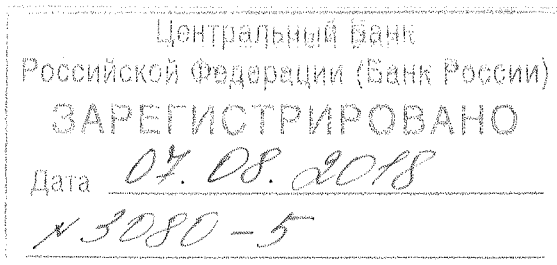 Центральный Банк
Российской Федерации (Банк России)
ЗАРЕГИСТРИРОВАНО
Дата 07. 08. 2018
№ 3080-5